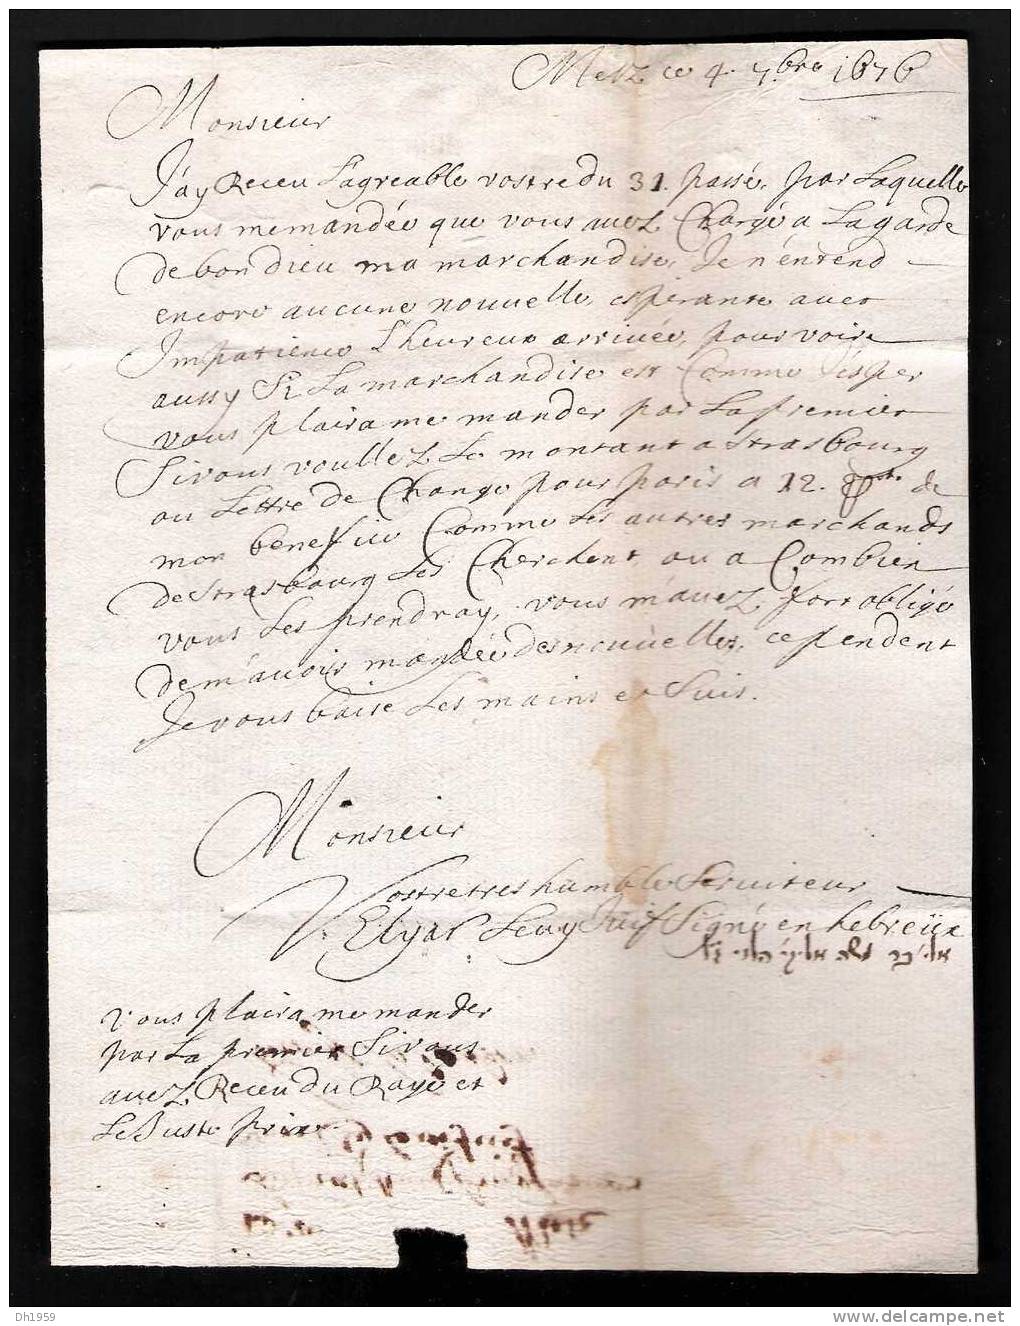 Metz ce 4. 7.bre 1676
Monsieur
J'ay Receu L'agreable vostre du 31. passé, par Laquelle
vous memandée que vous avez Chargé a La garde
de bon dieu ma marchandise, Je n'entend
encore aucune nouvelle, esperante avec
Impatience L'heureux arrivée, pour voire
aussy Si La marchandise est Comme J'esper
vous plaira me mander par La premier
Si vous voullez Le montant a Strasbourg
ou Lettre de Change pour paris a 12. de
mon benefice Comme Les autres marchands
de Strasbourg Les Cherchent, ou a Combien
vous Les prendray, vous m'avez fort obligé
dem'avoir mandée des nouvelles, cependent
Je vous baise Les mains et Suis.
Monsieur
Vostre tres humble Serviteur
Elyas Levy Juif Signé en hebreüx
vous plaira me mander
par La premier Si vous
avez Receu du Rayé et
Le Juste prix
Dh1959
delcampe.net